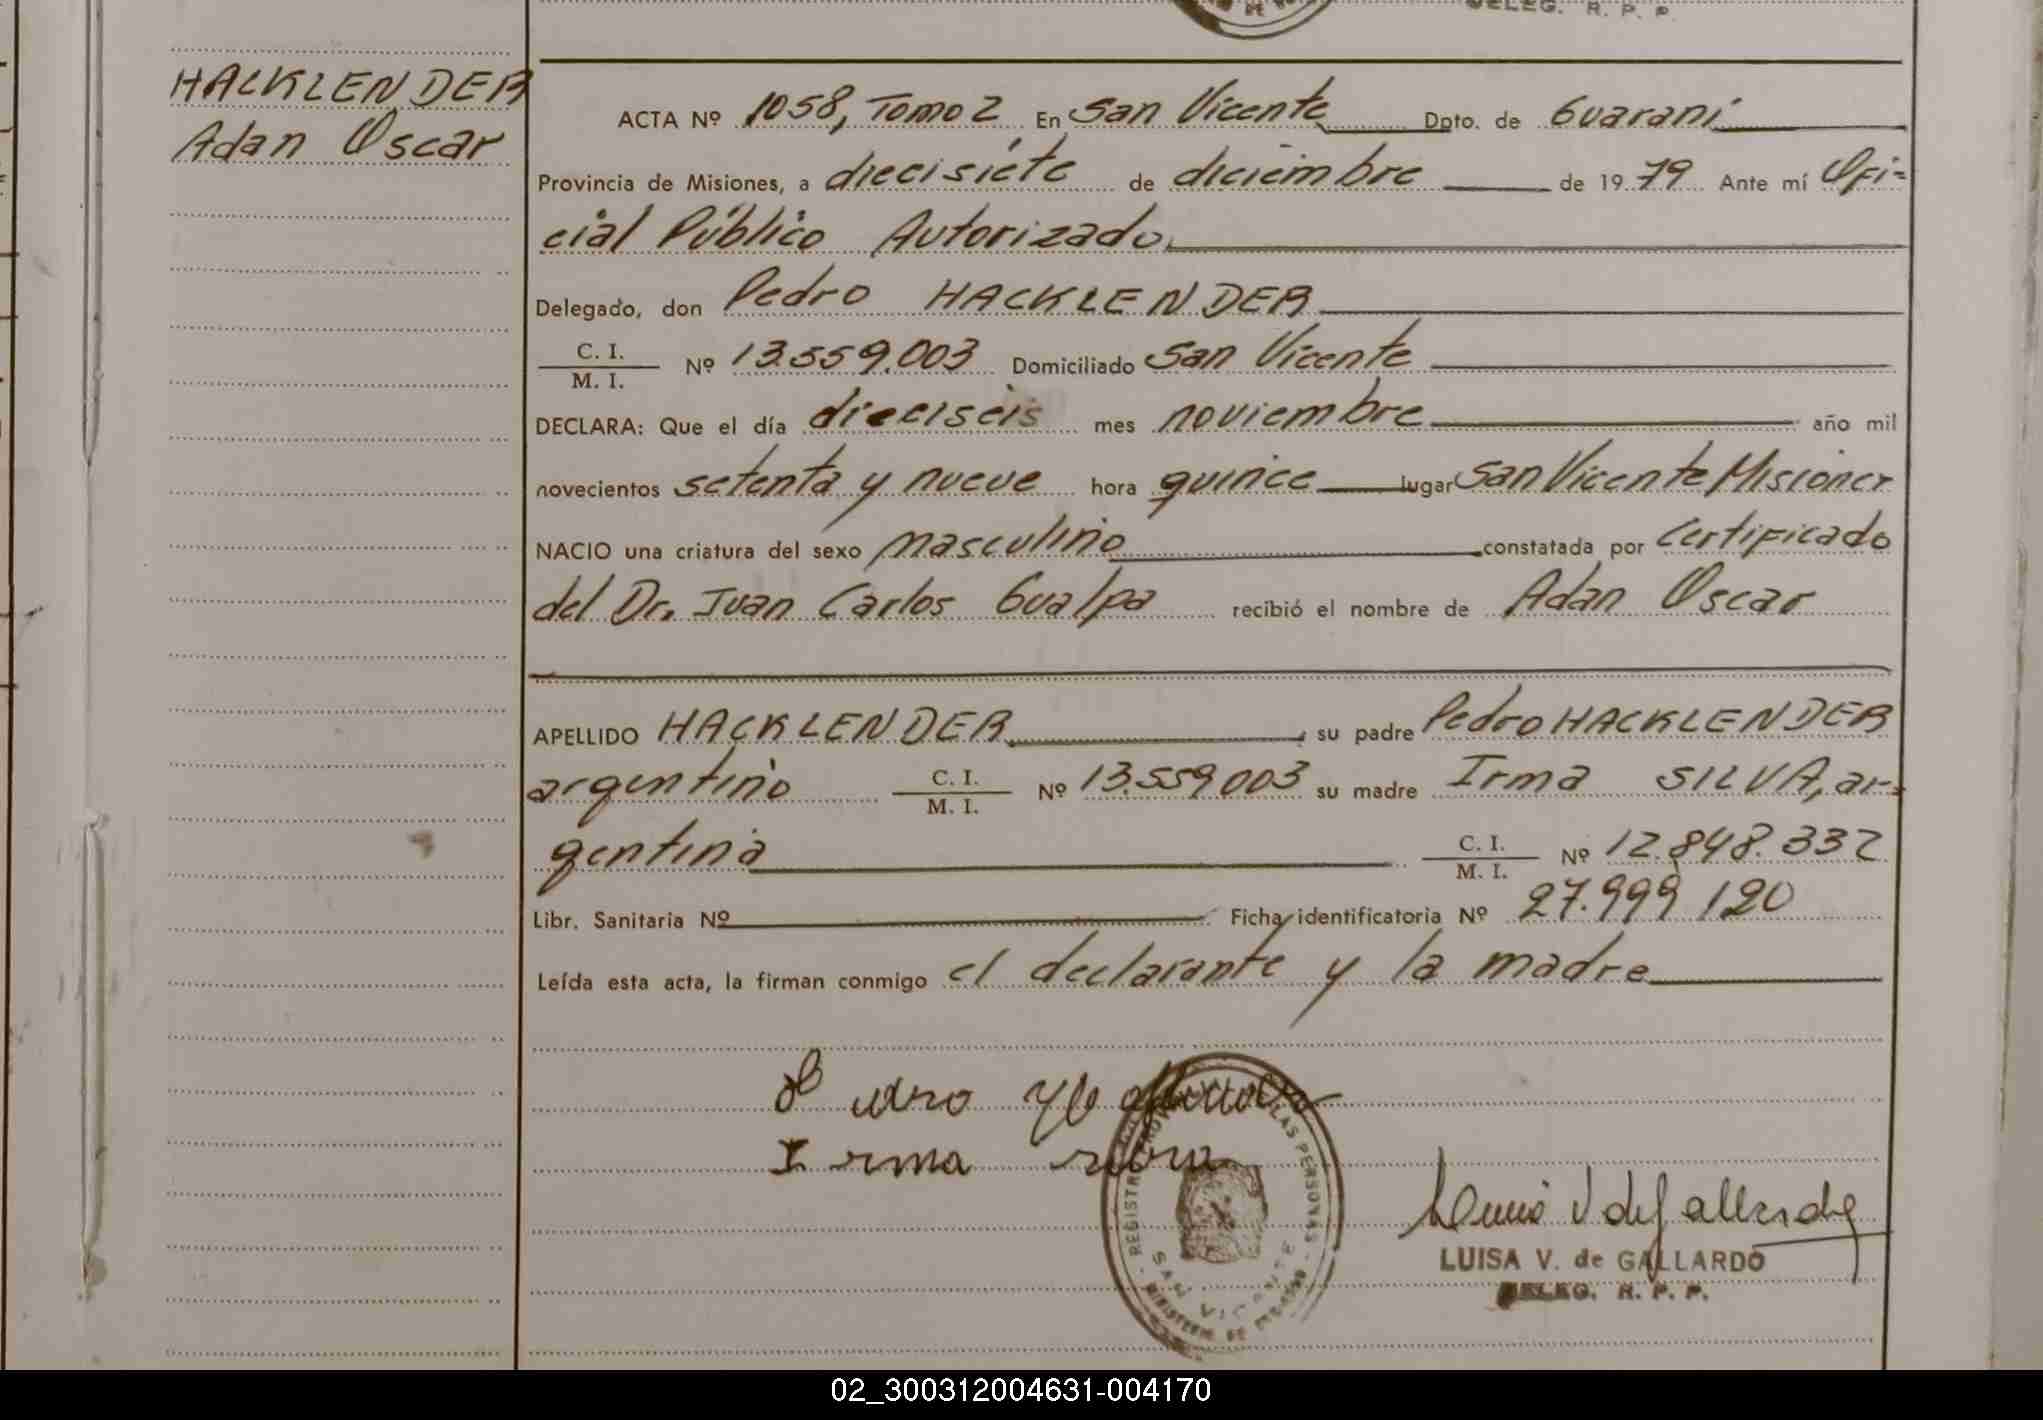 DELEG. R. P. P.
HACKLENDER
Adan Oscar
ACTA Nº 1058, Tomo 2 En San Vicente Dpto. de Guaraní
Provincia de Misiones, a diecisiete de diciembre de 1979 Ante mí Ofi-
cial Público Autorizado
Delegado, don Pedro HACKLENDER
C. I.
M. I. Nº 13.559.003 Domiciliado San Vicente
DECLARA: Que el día dieciseis mes noviembre año mil
novecientos setenta y nueve hora quince lugar San Vicente Misiones
NACIO una criatura del sexo masculino constatada por Certificado
del Dr. Juan Carlos Gualpa recibió el nombre de Adan Oscar
APELLIDO HACKLENDER su padre Pedro HACKLENDER
argentino C. I.
M. I. Nº 13.559.003 su madre Irma SILVA, ar-
gentina C. I.
M. I. Nº 12.848.332
Libr. Sanitaria Nº Ficha identificatoria Nº 27.999 120
Leída esta acta, la firman conmigo el declarante y la madre
Pedro
Irma
SAN VICENTE
LUISA V. de GALLARDO
DELEG. R. P. P.
02_300312004631-004170